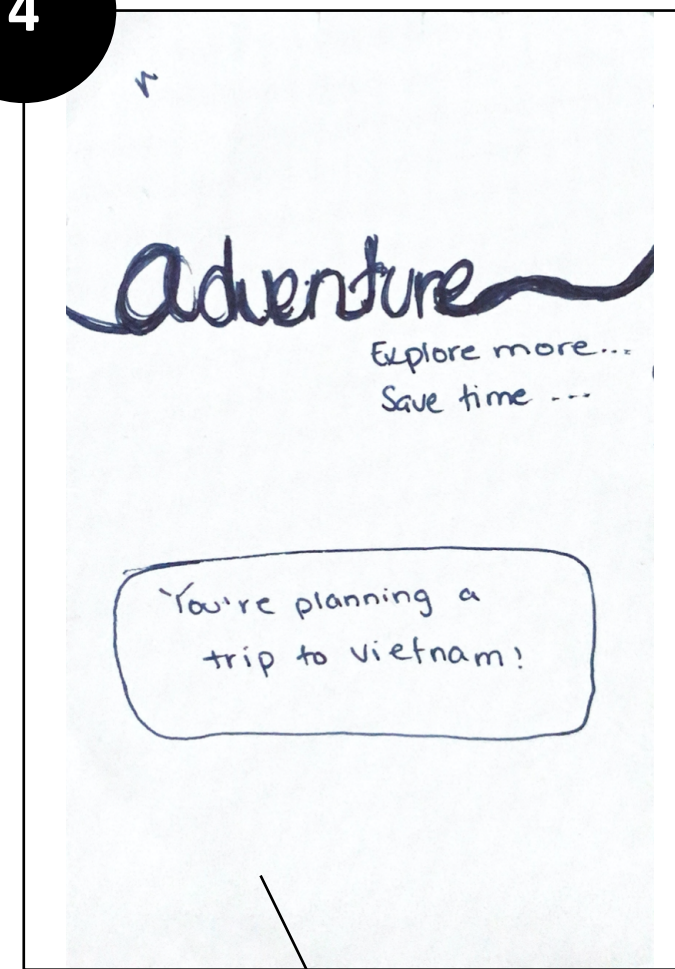 4
adventure
Explore more...
Save time ...
You're planning a
trip to vietnam!